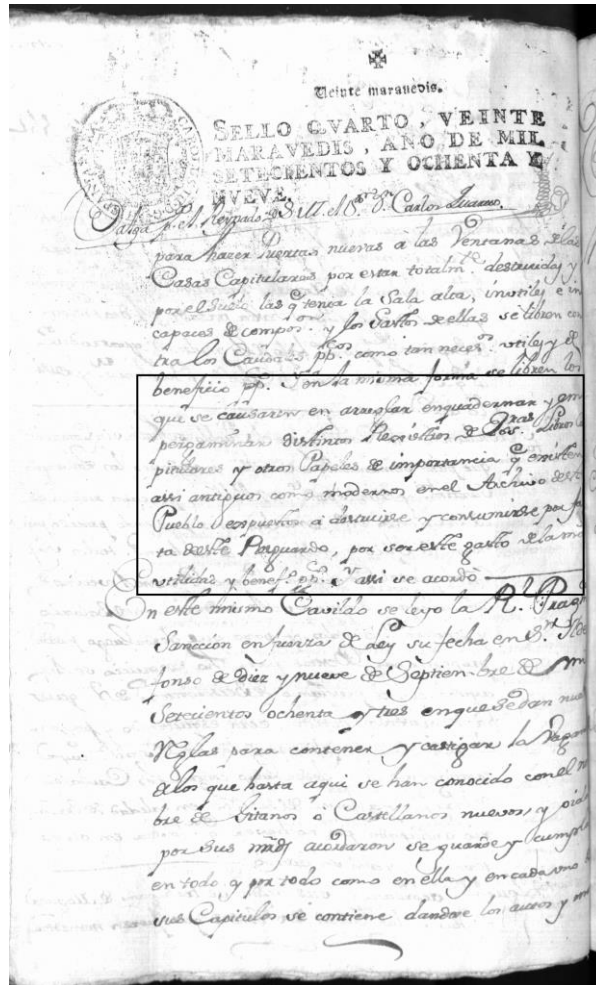 Veinte maravedis.
SELLO QVARTO, VEINTE
MARAVEDIS, AÑO DE MIL
SETECIENTOS Y OCHENTA Y
NVEVE.
Valga p.ª el Reynado de S.M. el S.r D.n Carlos Quarto.
para hazer Puertas nuevas a las Ventanas de las
Casas Capitulares por estar totalm.te destruidas y
por el Suelo las q.e tenia la Sala alta, inutiles e in
capaces de compos.on y los Gastos de ellas se libren con
tra los Caudales pp.cos como tan neces.os utiles y de
beneficio pp.co Y en la misma forma se libren los
que se causaren en arreglar enquadernar y em
pergaminar distintos Registros de Ess.ras, Libros Ca
pitulares y otros Papeles de importancia q.e existen
assi antiguos como modernos en el Archivo deste
Pueblo expuestos a destruirse y consumirse por fal
ta deste Resguardo, por ser este gasto de la m
utilidad y benef.o pp.co Y assi se acordó
En este mismo Cavildo se leyo la R.l Prag
Sanccion en fuerza de Ley su fecha en S.n Ilde
fonso de diez y nueve de Septiembre de mil
Setecientos ochenta y tres en que se dan nue
Reglas para contener y castigar la Vagan
de los que hasta aqui se han conocido con el n
bre de Gitanos ó Castellanos nuevos, y oida
por sus mrds acordaron se guarde y cumpla
en todo y por todo como en ella y en cada uno
sus Capitulos se contiene dandose los autos y